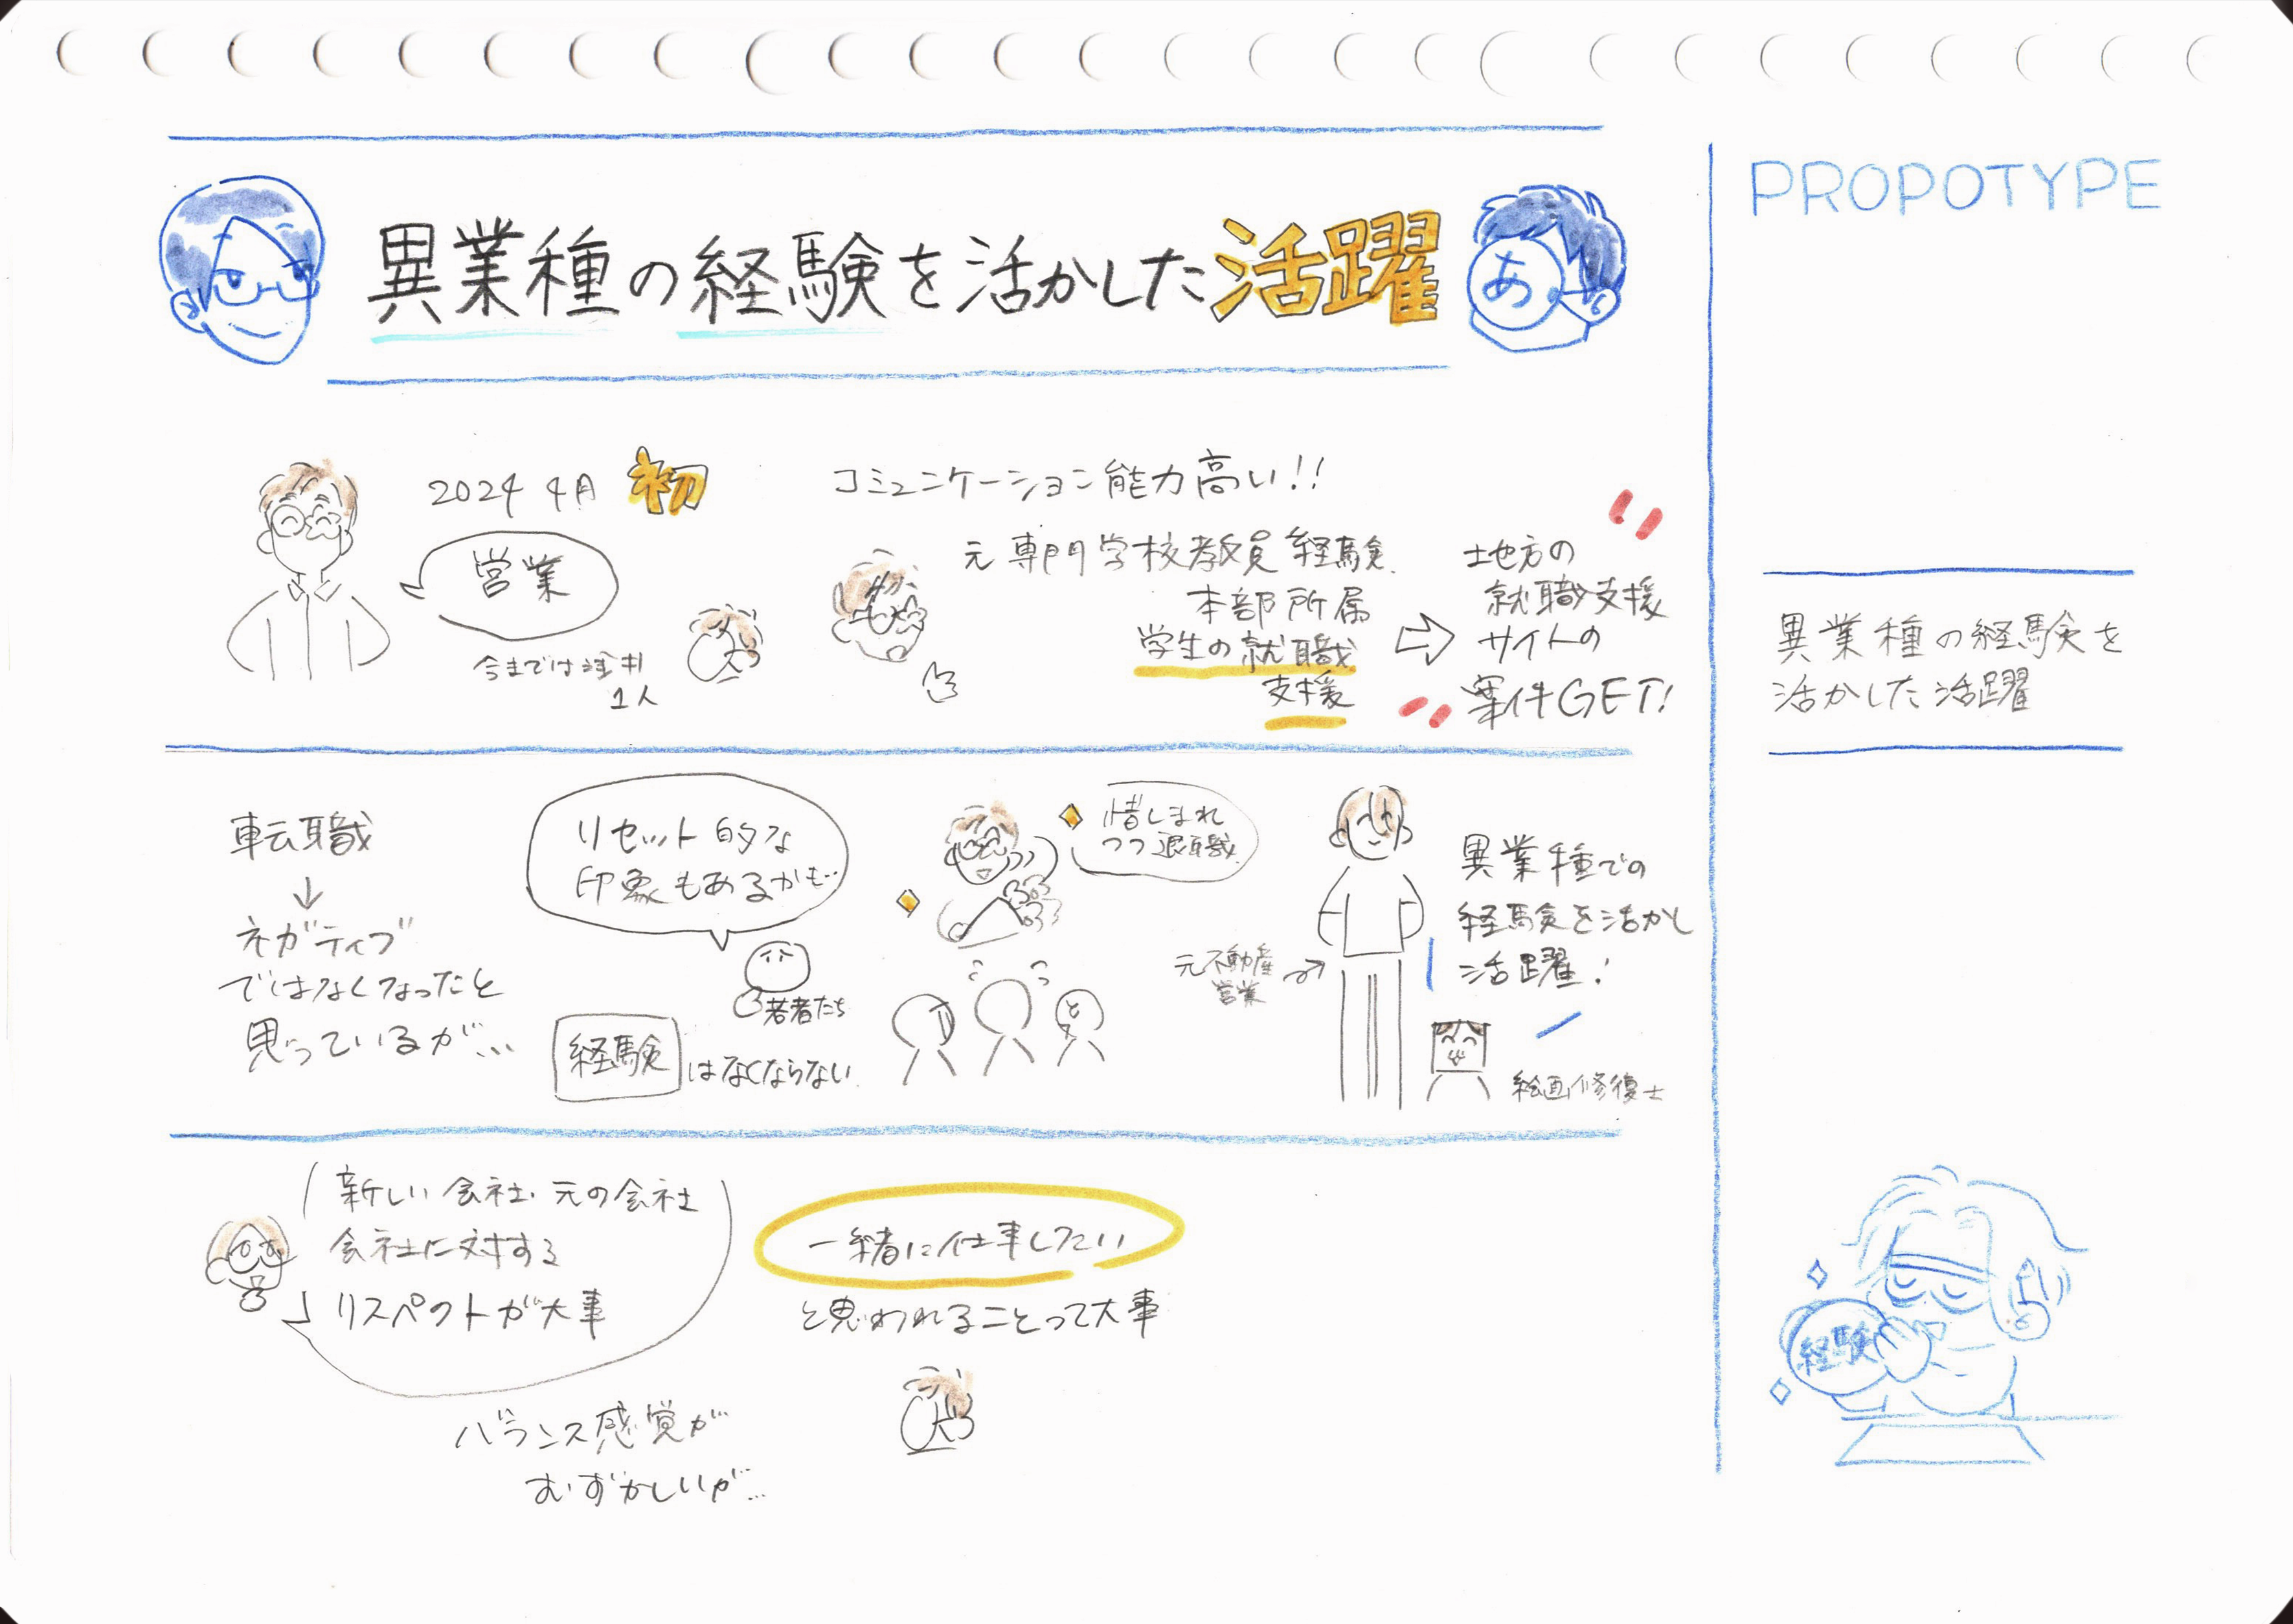 異業種の経験を活かした活躍
あ
PROPOTYPE
異業種の経験を
活かした活躍
経験
2024 4月 初
営業
今までは
1人
コミュニケーション能力高い!!
元専門学校教員経験.
本部所属
学生の就職
支援
地方の
就職支援
サイトの
案件GET!
転職
↓
ネガティブ
ではなくなったと
思っているが...
リセット的な
印象もあるかも…
若者たち
経験はなくならない.
惜しまれ
つつ退職
と
元不動産
営業
異業種での
経験を活かし
活躍!
絵画修復士
新しい会社・元の会社
会社に対する
リスペクトが大事
バランス感覚が
むずかしいが...
一緒に仕事したい
と思われることって大事